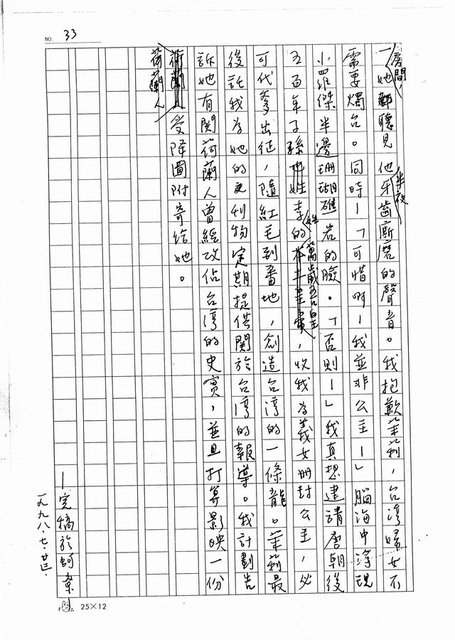 NO. 33
房間，
一她都聽見他半夜牙齒廝磨的聲音。我抱歉茉莉，台灣婦女不
需要燭台。同時—「可惜啊—我並非公主—」腦海中浮現
小羅傑半邊珊瑚礁岩的臉。「否則—」我真想建請唐朝後
五百年子孫姓李的萬歲吾皇，收我為義女冊封公主，必
可代爹出征，隨紅毛到番地，創造台灣的一條龍。茉莉最
後託我為她的刊物定期提供關於台灣的報導。我計劃告
訴她有關荷蘭人曾經攻佔台灣的史實，並且打算影映一份
荷蘭人受降圖附寄給她。
—完稿於劍
一九九八.七.廿三.
25×12